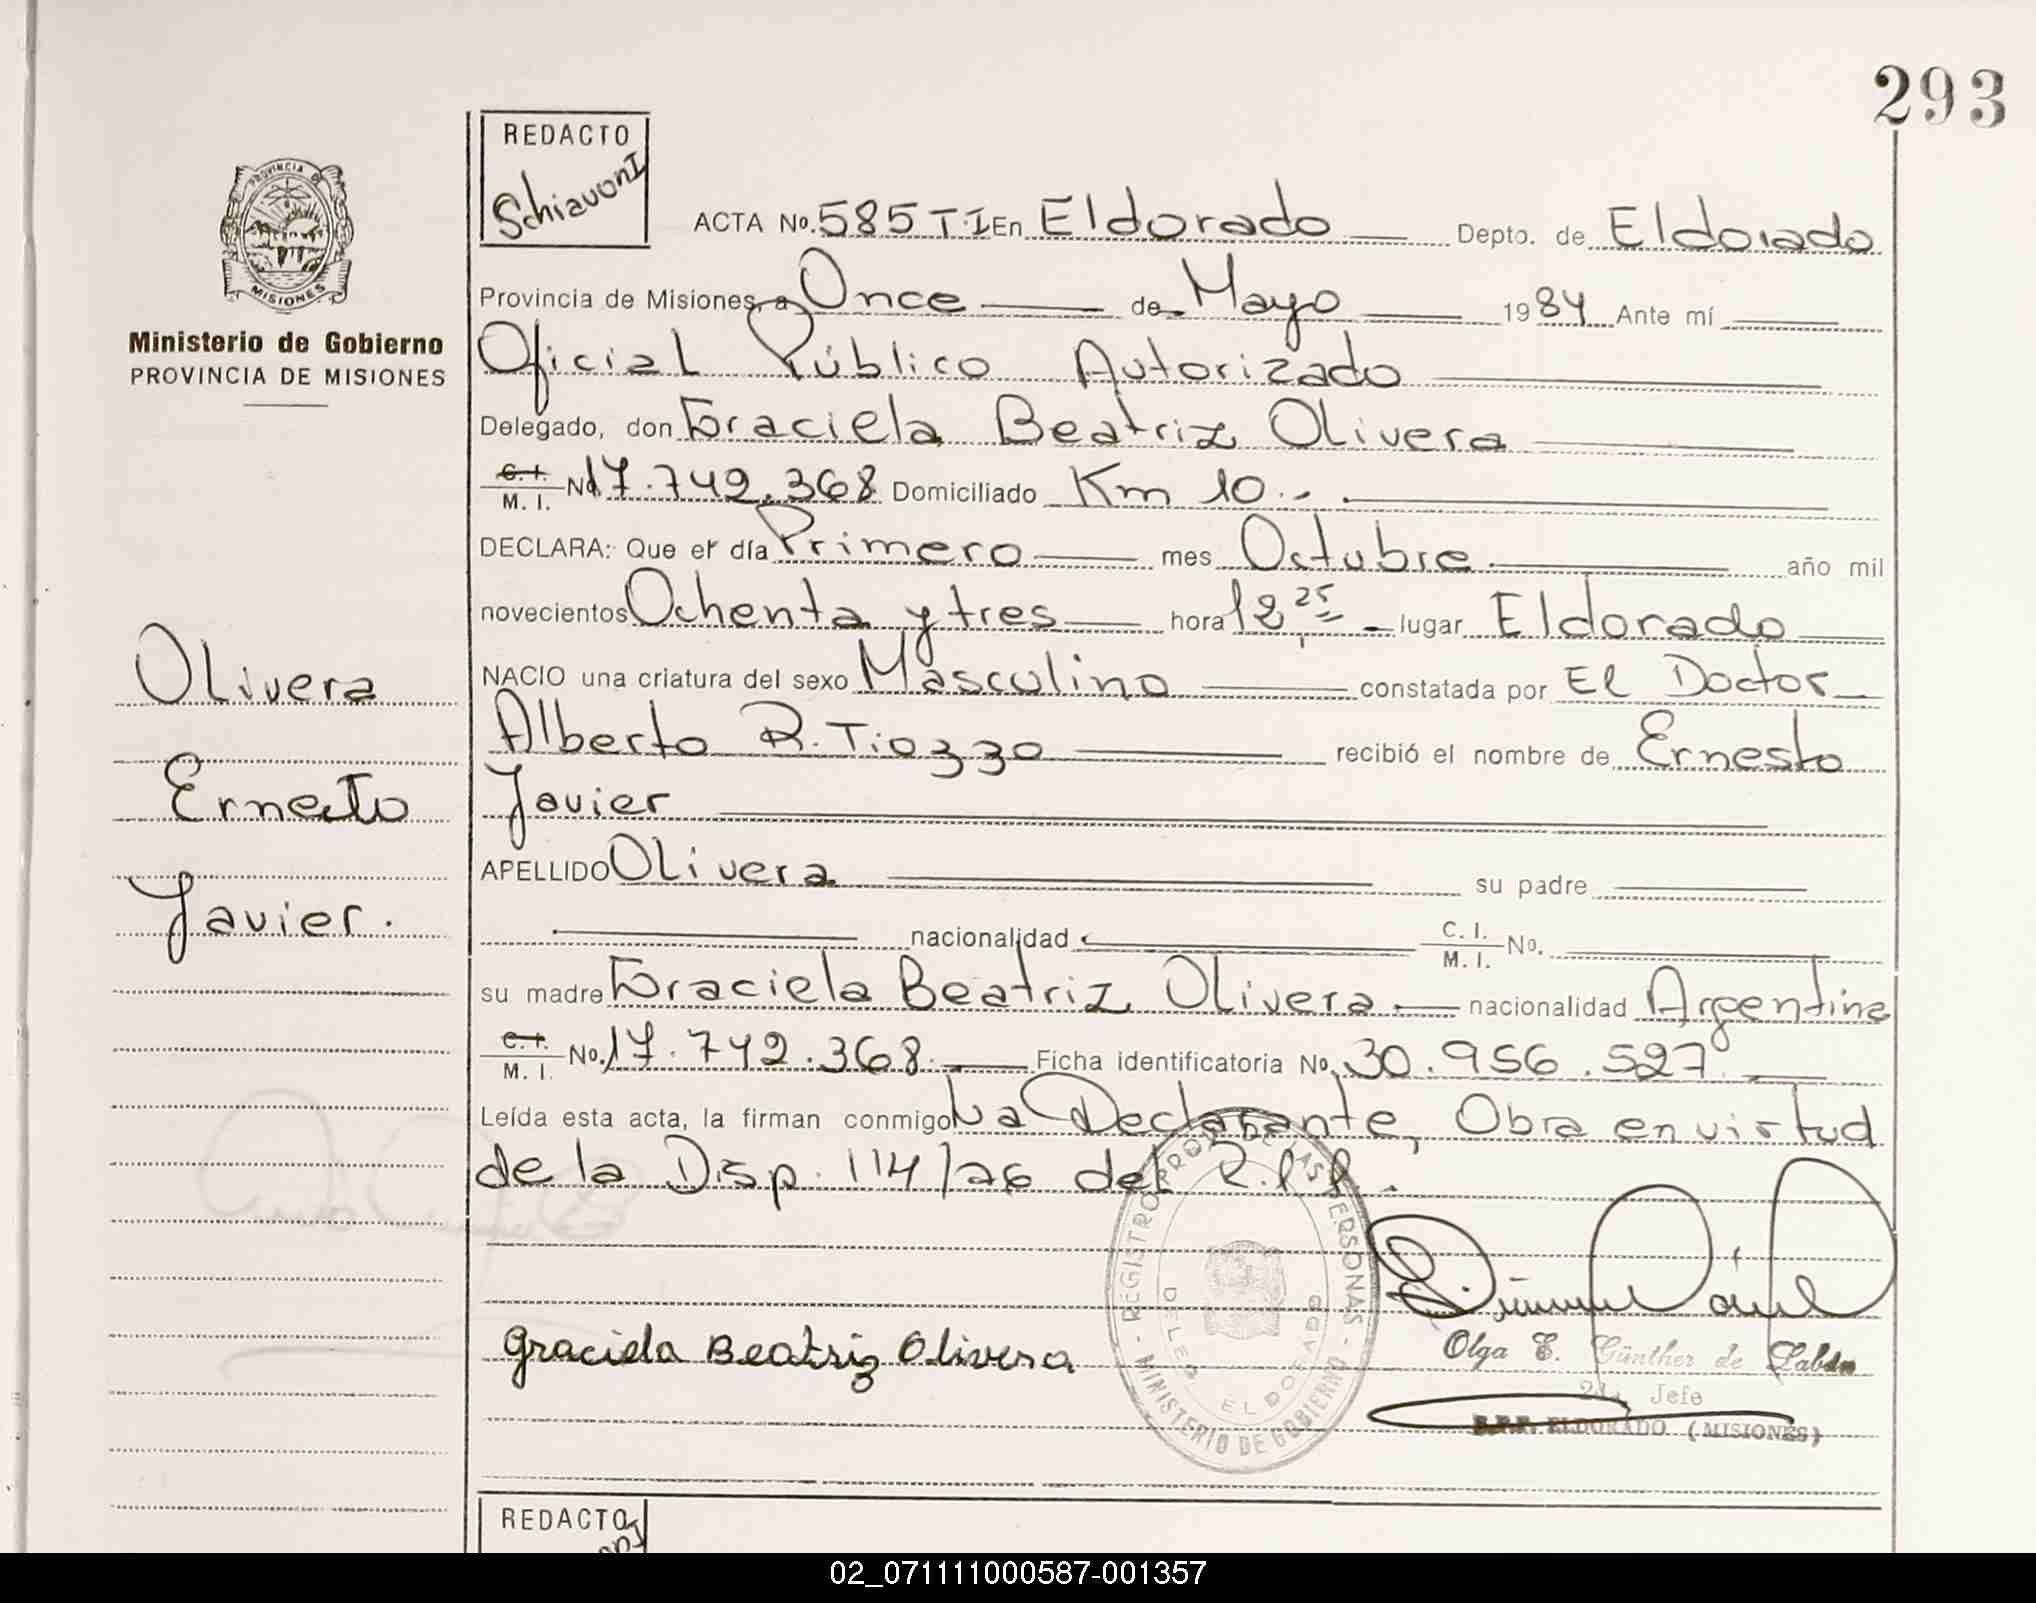 293
REDACTO
Schiavoni
ACTA No. 585 T.I En Eldorado Depto. de Eldorado
Provincia de Misiones, a Once de Mayo 1984 Ante mí
PROVINCIA DE MISIONES
Ministerio de Gobierno
PROVINCIA DE MISIONES
Oficial Público Autorizado
Delegado, don Graciela Beatriz Olivera
C. I. M. I. No 17.742.368 Domiciliado Km 10..
DECLARA: Que el día Primero mes Octubre año mil
novecientos Ochenta y tres hora 12,25 lugar Eldorado
NACIO una criatura del sexo Masculino constatada por El Doctor
Alberto R. Tiozzo recibió el nombre de Ernesto
Javier
APELLIDO Olivera su padre
nacionalidad C. I. M. I. No.
su madre Graciela Beatriz Olivera nacionalidad Argentina
C. I. M. I. No. 17.742.368. Ficha identificatoria No. 30.956.527
Leída esta acta, la firman conmigo La Declarante, Obra en virtud
de la Disp. 114/76 del R.P.P.
Olivera
Ernesto
Javier.
REGISTRO PROV. DE LAS PERSONAS - MINISTERIO DE GOBIERNO -
DELEG. ELDORADO
Graciela Beatriz Olivera
Olga E. Günther de Labán
2da. Jefe
R.P.P. ELDORADO (MISIONES)
REDACTO
02_071111000587-001357